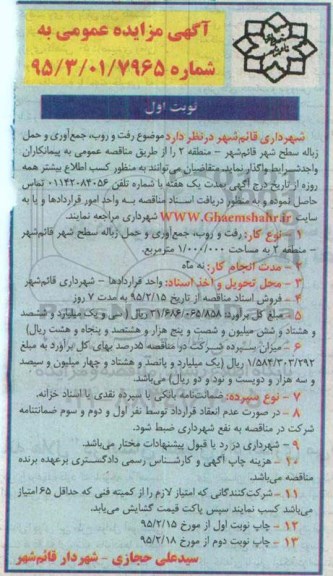 آگهی مزایده عمومی به
شماره ۹۵/۳/۰۱/۷۹۶۵
نوبت اول
شهرداری قائم‌شهر درنظر دارد موضوع رفت و روب، جمع‌آوری و حمل
زباله سطح شهر قائم‌شهر – منطقه ۲ را از طریق مناقصه عمومی به پیمانکاران
واجدشرایط واگذار نماید. متقاضیان می‌توانند به منظور کسب اطلاع بیشتر همه
روزه از تاریخ درج آگهی بمدت یک هفته با شماره تلفن ۰۱۱۴۲۰۸۴۰۵۶ تماس
حاصل نموده و به منظور دریافت اسناد مناقصه به واحد امور قراردادها و یا به
سایت WWW.Ghaemshahr.ir شهرداری مراجعه نمایند.
۱ – نوع کار: رفت و روب، جمع‌آوری و حمل زباله سطح شهر قائم‌شهر
– منطقه ۲ به مساحت ۱/۰۰۰/۰۰۰ مترمربع.
۲ – مدت انجام کار: نه ماه
۳ – محل تحویل و أخذ اسناد: واحد قراردادها – شهرداری قائم‌شهر
۴ – فروش اسناد مناقصه از تاریخ ۹۵/۲/۱۵ به مدت ۷ روز
۵ – مبلغ کل برآورد: ۳۱/۶۸۶/۰۶۵/۸۵۸ ریال (سی و یک میلیارد و ششصد
و هشتاد و شش میلیون و شصت و پنج هزار و هشتصد و پنجاه و هشت ریال)
۶ – میزان سپرده شرکت در مناقصه ۵درصد بهای کل برآورد به مبلغ
۱/۵۸۴/۳۰۳/۲۹۲ ریال (یک میلیارد و پانصد و هشتاد و چهار میلیون و سیصد
و سه هزار و دویست و نود و دو ریال) می‌باشد.
۷ – نوع سپرده: ضمانتنامه بانکی یا سپرده نقدی یا اسناد خزانه.
۸ – در صورت عدم انعقاد قرارداد توسط نفر اول و دوم و سوم ضمانتنامه
شرکت در مناقصه به نفع شهرداری ضبط شود.
۹ – شهرداری در رد یا قبول پیشنهادات مختار می‌باشد.
۱۰ – هزینه چاپ آگهی و کارشناس رسمی دادگستری برعهده برنده
مناقصه می‌باشد.
۱۱ – شرکت‌کنندگانی که امتیاز لازم را از کمیته فنی که حداقل ۶۵ امتیاز
می‌باشد کسب نمایند سپس پاکت قیمت گشایش می‌یابد.
۱۲ – چاپ نوبت اول از مورخ ۹۵/۲/۱۵
۱۳ – چاپ نوبت دوم از مورخ ۹۵/۲/۱۸
سیدعلی حجازی – شهردار قائم‌شهر